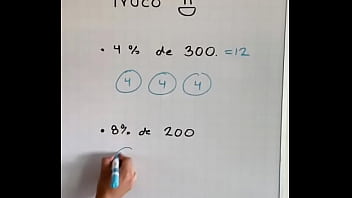 TRUCO
• 4% de 300. = 12
4 4 4
• 8% de 200